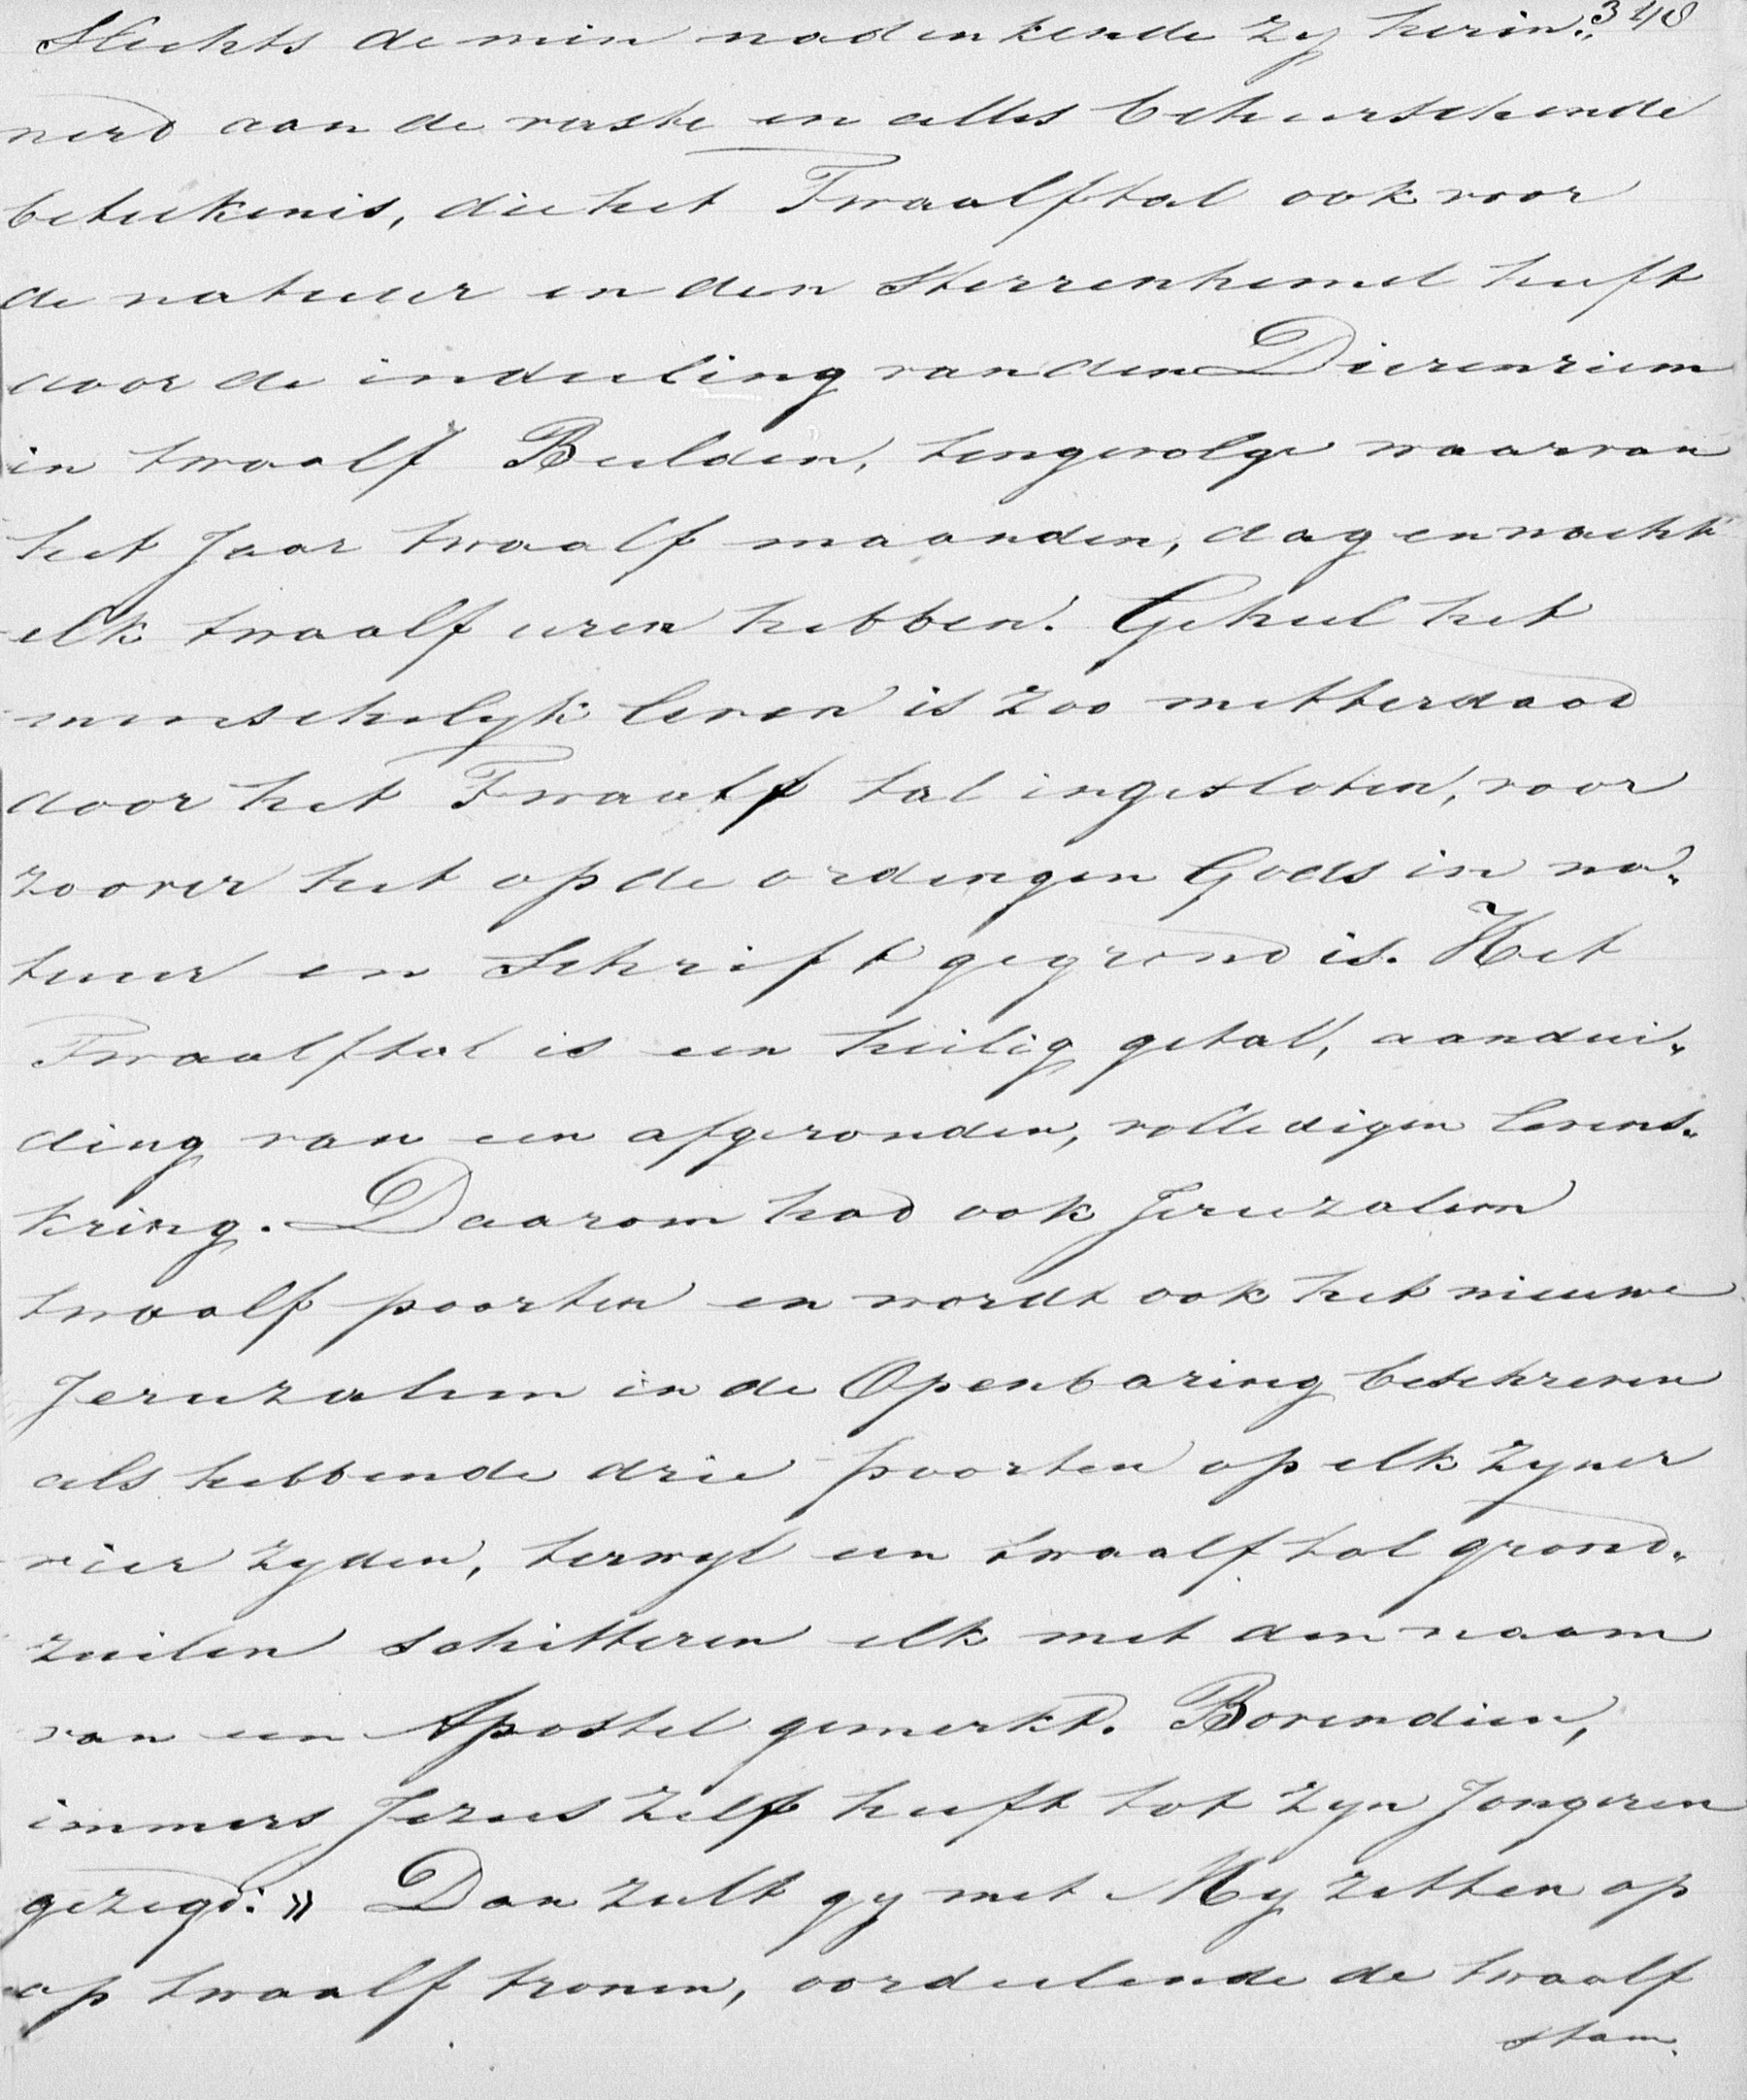 348
Slechts de min nadenkende zy herin„
nerd aan de vaste en alles beheerschende
beteekenis, die het Twaalftal ook voor
de natuur en den Sterrenhemel heeft
door de indeeling van den Dierenriem
in twaalf Beelden, tengevolge waarvan
het Jaar twaalf maanden, dag en nacht
elk twaalf uren hebben. Geheel het
menschelyk leven is zoo metterdaad
door het Twaalf tal ingesloten, voor
zoover het op de ordeningen Gods in na„
tuur en Schrift gegrond is. Het
Twaalftal is een heilig getal, aandui„
ding van een afgeronden, volledigen levens„
kring. Daarom had ook Jeruzalem
twaalf poorten en wordt ook het nieuwe
Jeruzalem in de Openbaring beschreven
als hebbende drie poorten op elk zyner
vier zyden, terwyl een twaalftal grond„
zuilen schitteren elk met den naam
van een Apostel gemerkt. Bovendien,
immers Jezus zelf heeft tot zyn Jongeren
gezegd: » Dan zult gy met My zitten op
op twaalf tronen, oordeelende de twaalf
stam.